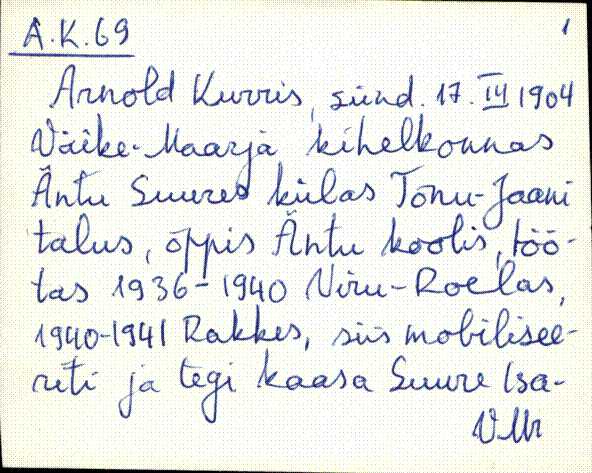 A.K.69 1
Arnold Kurris, sünd. 17. IV 1904
Väike-Maarja kihelkonnas
Äntu Suures külas Tõnu-Jaani
talus, õppis Äntu koolis, töö-
tas 1936-1940 Viru-Roelas,
1940-1941 Rakkes, siis mobilisee-
riti ja tegi kaasa Suure Isa-
VMr